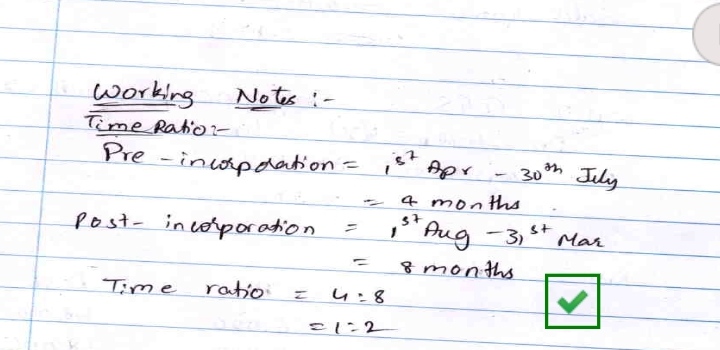 Working Notes :-
Time Ratio:-
Pre - incorporation = 1st Apr - 30th July
= 4 months
Post- incorporation = 1st Aug - 31st Mar
= 8 months
Time ratio = 4:8
= 1:2